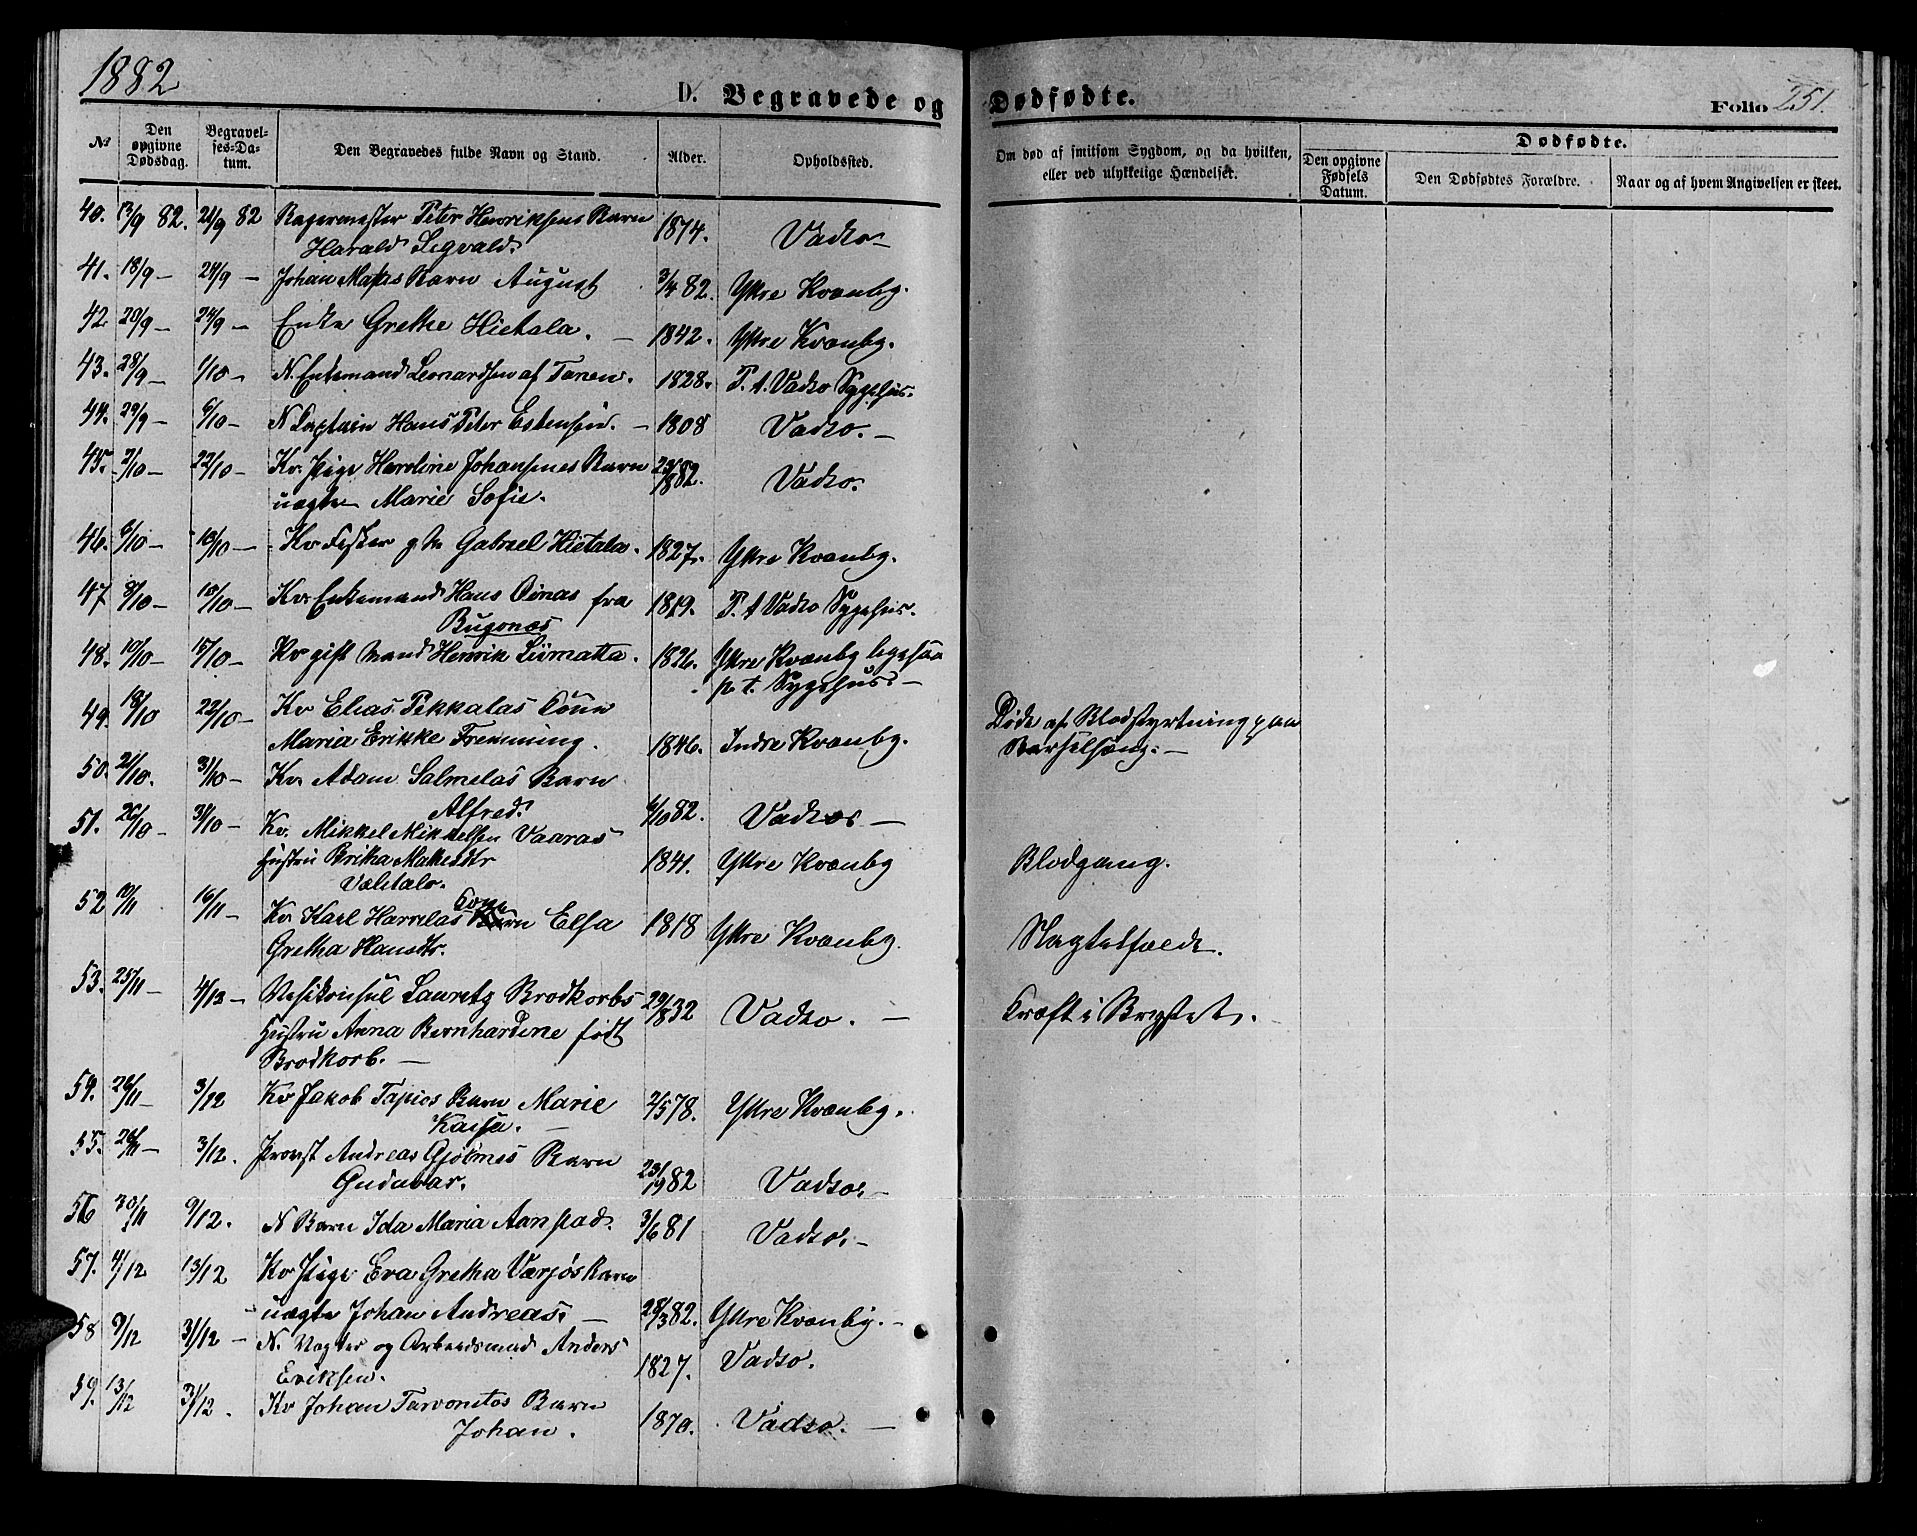 1882
D. Begravede og Dødfødte.
Folio 251.
No
Den opgivne Dødsdag.
Begravelses-Datum.
Den Begravedes fulde Navn og Stand.
Alder.
Opholdssted.
Om død af smitsom Sygdom, og da hvilken, eller ved ulykkelige Hændelser.
Dødfødte.
Den opgivne Fødsels Datum.
Den Dødfødtes Forældre.
Naar og af hvem Angivelsen er skeet.
40. 13/9 82. 24/9 82 Bagermester Peter Henriksens Barn 1874. Vadsø
Harald Sigvald.
41. 18/9 — 24/9 — Johan Barn August 3/4 82. Ytre Kvænby.
42 20/9 — 24/9 — Enke Grethe Hietala. — 1842. Ytre Kvænby.
43. 28/9 — 1/10 — N. Enkemand Leonardsen af Tanen. 1828. P. t. Vadsø Sygehus.
44. 29/9 — 6/10 — N Captain Hans Peter Estensen. — 1808 Vadsø. —
45. 2/10 — 22/10 — Kv. Pige Karoline Johansenes Barn 82. Vadsø.
uægte Marie Sofie.
46. 6/10 — 10/10 — Kv Fisker Gabriel Hietala. 1827. Ytre Kvænby.
47 8/10 — 10/10 — Kv. Enkemand Hans Oinas fra 1819. P. t Vadsø Sygehus.
Bugønæs
48. 10/10 — 15/10 — Kv gift Mand Henrik Liimatta. 1826. Ytre Kvænby ligesaa
p. t. Sygehus. —
49. 18/10 22/10 — Kv Elias Pekkalas Kone
Maria Erikke Fremming. 1846. Indre Kvænby. Døde af Blodstyrtning paa
Barselseng. —
50. 21/10. 31/10 — Kv. Adam Salmelas Barn
Alfred. 6/10 82. Vadsø —
51. 26/10 — 31/10 — Kv. Mikkel Mikkelsen Vaaras
Hustru Brita 1841. Ytre Kvænby Blodgang.
52 10/11 16/11 — Kv Karl Harrelas Kone Elsa 1818 Ytre Kvænby. Slagtilfælde.
Gretha Hansdtr.
53. 25/11 — 4/12 — Visekonsul Lauretz Brodkorbs 1832 Vadsø. — Kræft i Brystet. —
Hustru Anna Bernhardine født
Brodkorb. —
54. 26/11 — 3/12 Kv Jakob Tapios Barn Marie 2/5 78. Ytre Kvænby.
Kaisa. —
55. 26/11 — 3/12. Provst Andreas Gjølmes Barn
Gudabar. 82 Vadsø. —
56 30/11 9/12. N Barn Ida Maria 3/6 81 Vadsø. —
57. 4/12 13/12 Kv Pige Eva Gretha Værjøs Barn
uægte Johan Andreas. — 28/3 82. Ytre Kvænby. —
58 9/12 31/12 — N. Vægter og Arbeidsmand Anders
Eriksen. 1827. Vadsø.
59. 13/12 31/12. Kv Johan Tarvonitos Barn
Johan. 1870. Vadsø. —